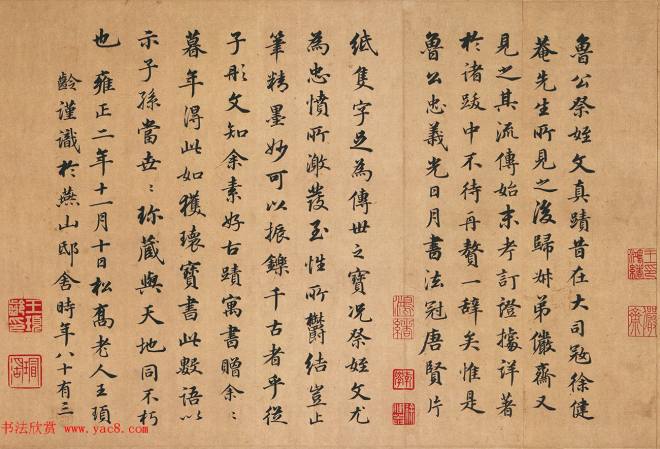 魯公祭姪文真蹟昔在大司寇徐健
菴先生所見之後歸姊弟儼齋又
見之其流傳始末考訂證據詳著
於諸跋中不待再贅一辭矣惟是
魯公忠義光日月書法冠唐賢片
紙隻字足為傳世之寶況祭姪文尤
為忠憤所激發至性所鬱結豈止
筆精墨妙可以振鑠千古者乎從
子彤文知余素好古蹟寓書贈余:
暮年得此如獲瓌寶書此數語以
示子孫當世:珎藏與天地同不朽
也 雍正二年十一月十日松喬老人王頊
齡謹識於燕山邸舍時年八十有三
书法欣赏 www.yac8.com